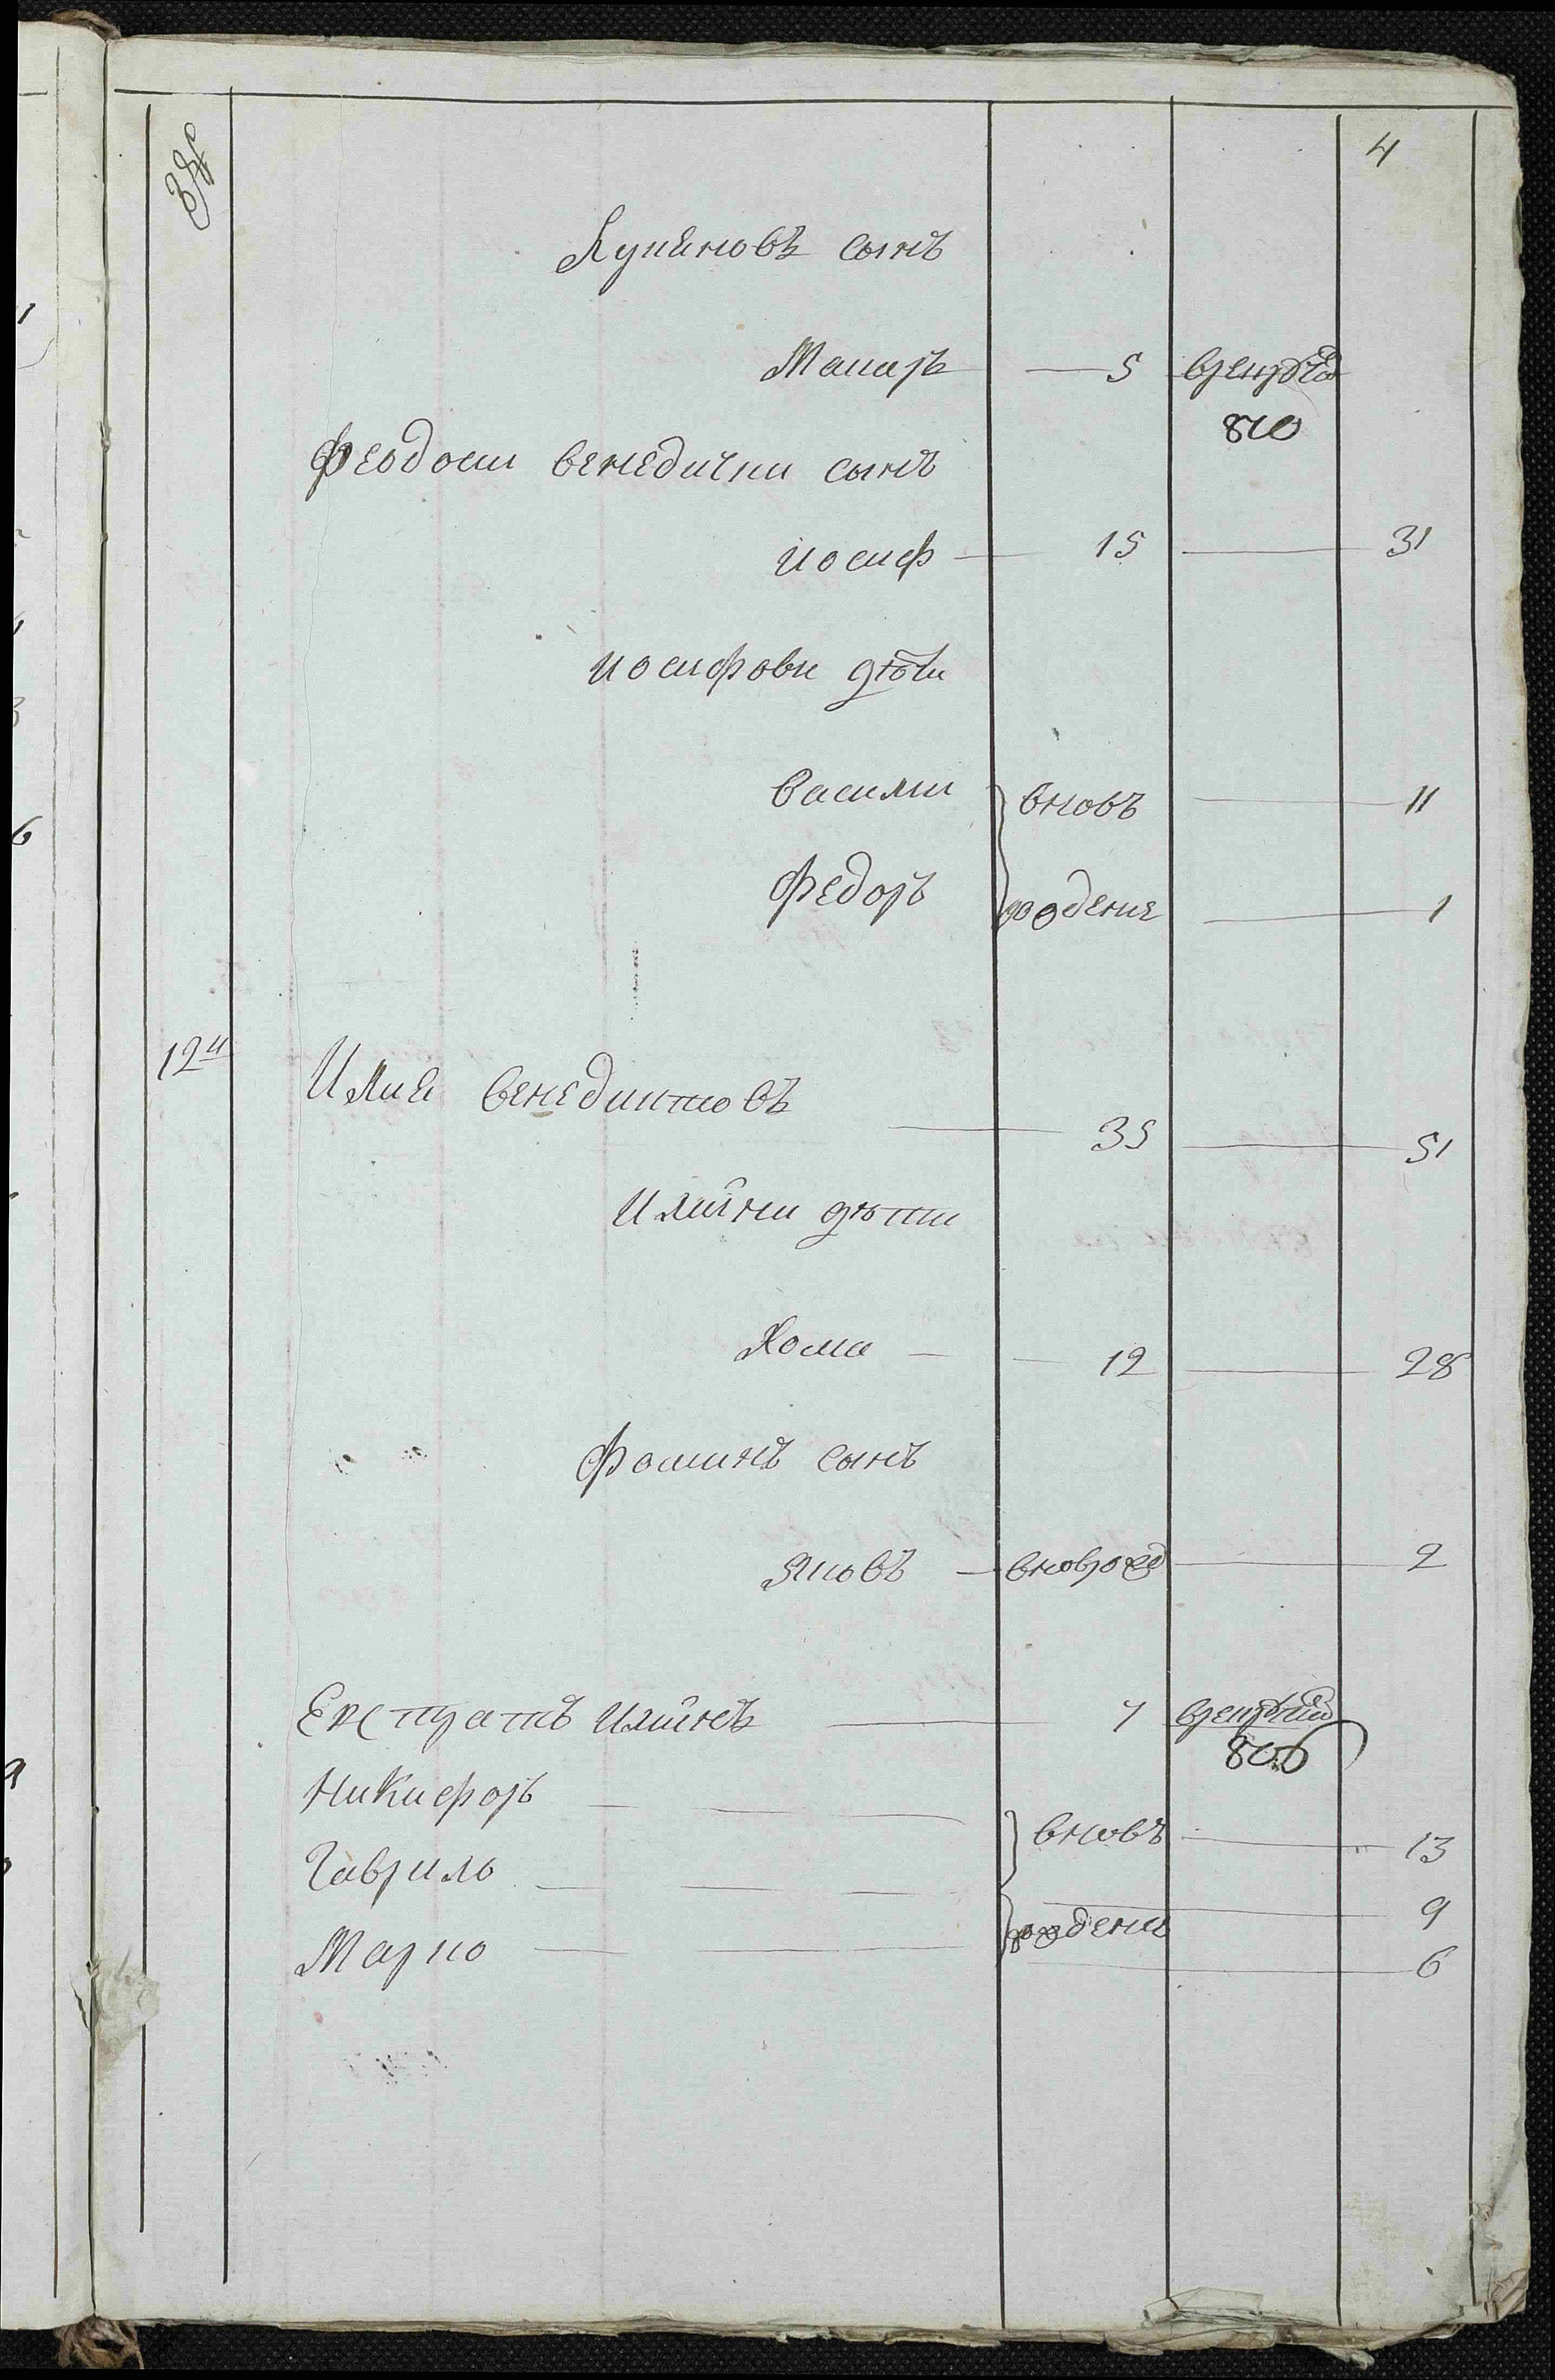 4
Лукяновъ сынъ
Макаръ 5 врекруты
810
Феодосии венедички сынъ
иосиф 15 31
иосифови дѣти
Василии вновь 11
Федоръ рожденне 1
12й Илия Венедиктовъ 35 51
Илийни дѣти
Хома 12 28
Фоминъ сынъ
Яковъ вноврожд 2
Евстратъ Илиинъ 7 врекруты
806
Никифоръ вновь 13
Гаврило рожденне 9
Марко 6